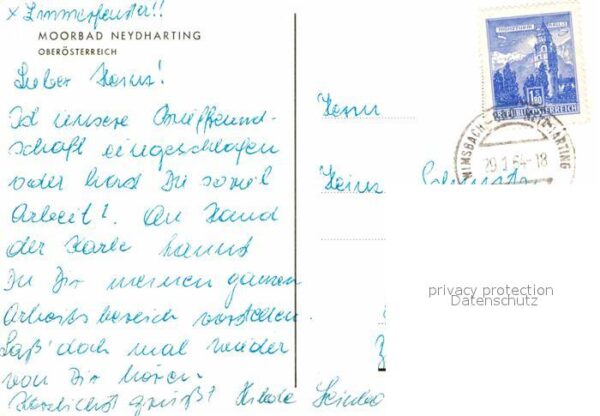 x Zimmerfenster!!
MOORBAD NEYDHARTING
OBERÖSTERREICH
Lieber Heinz!
Ist unsere Brieffreund-
schaft eingeschlafen
oder hast Du soviel
Arbeit? An Hand
der Karte kannst
Du Dir meinen ganzen
Arbeitsbereich vorstellen.
Laß' doch mal wieder
von Dir hören.
Herzlichst grüßt Hilde
Herrn
Heinz
REPUBLIK ÖSTERREICH
WIMSBACH - BAD NEYDHARTING
29.1.64-18
privacy protection
Datenschutz